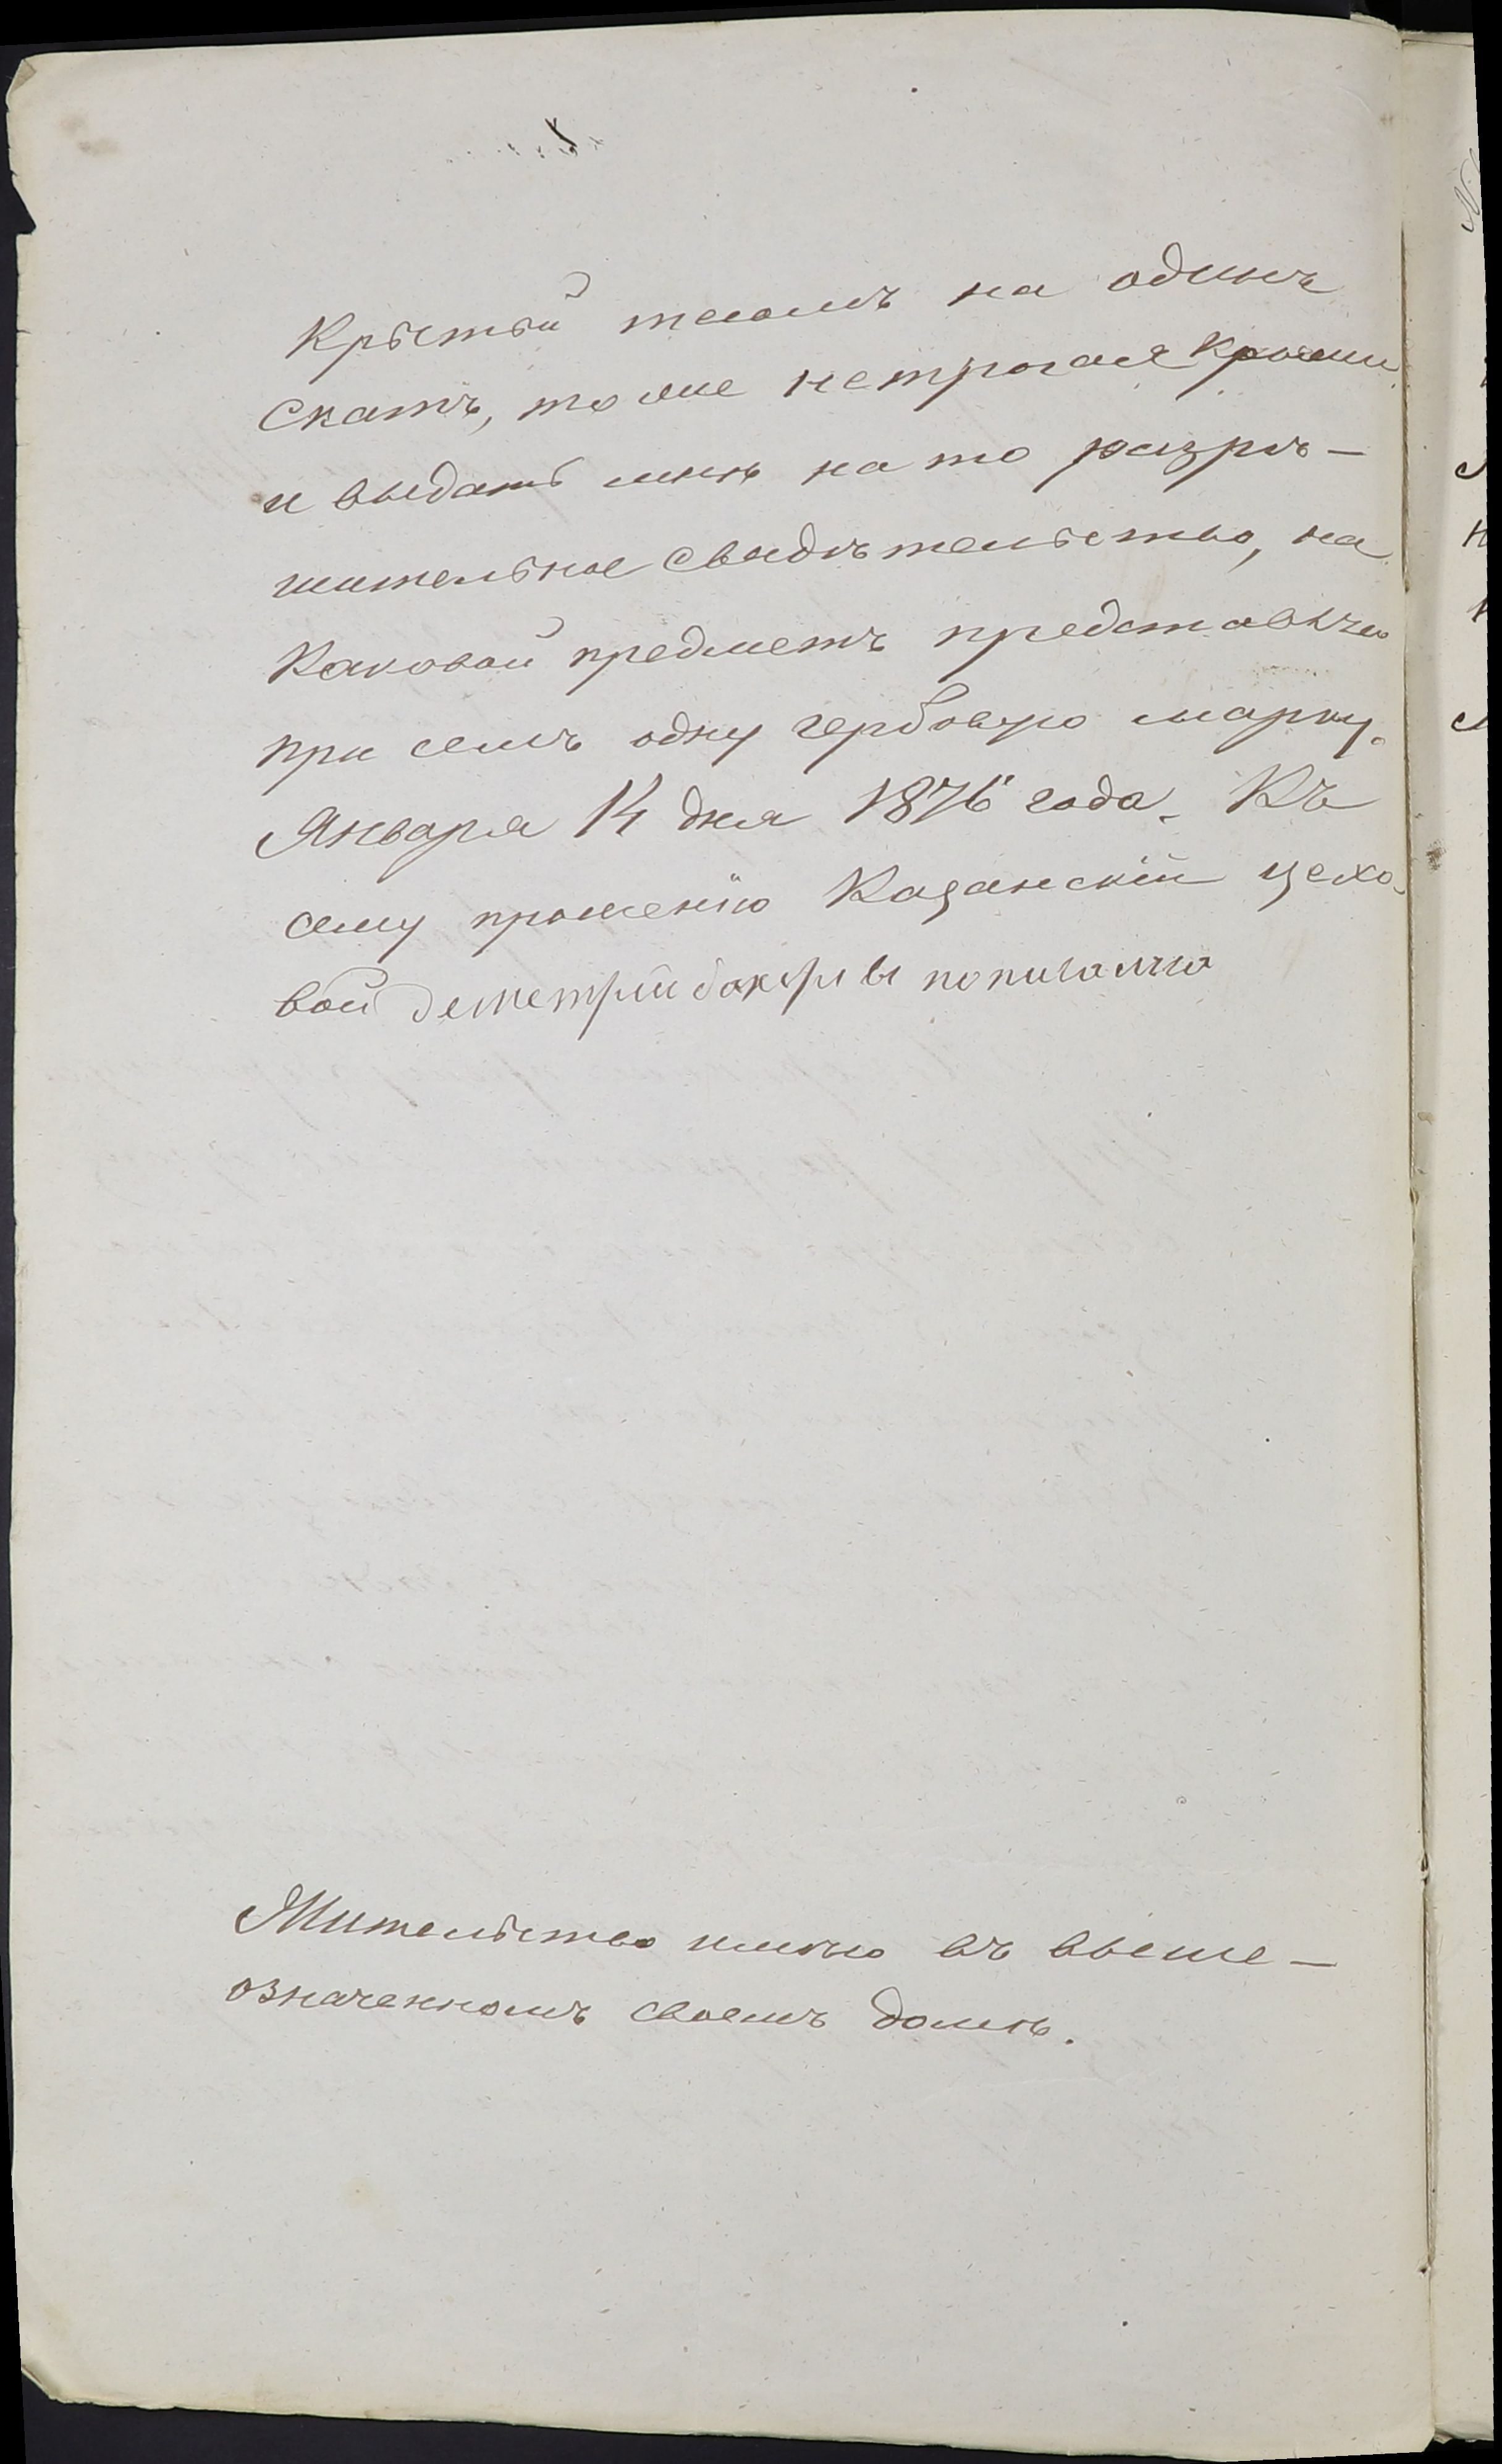 крытый тесомъ на одинъ
скатъ, то же нетрогая крыши
и выдать мнѣ на то разрѣ-
шительное свидѣтельство, на
каковой предметъ представляю
при семъ одну гербовую марку.
Января 14 дня 1876 года. Къ
сему прошенію Казанскій цехо-
вой деметрий
Жительство имѣю въ выше-
означенномъ своемъ домѣ.